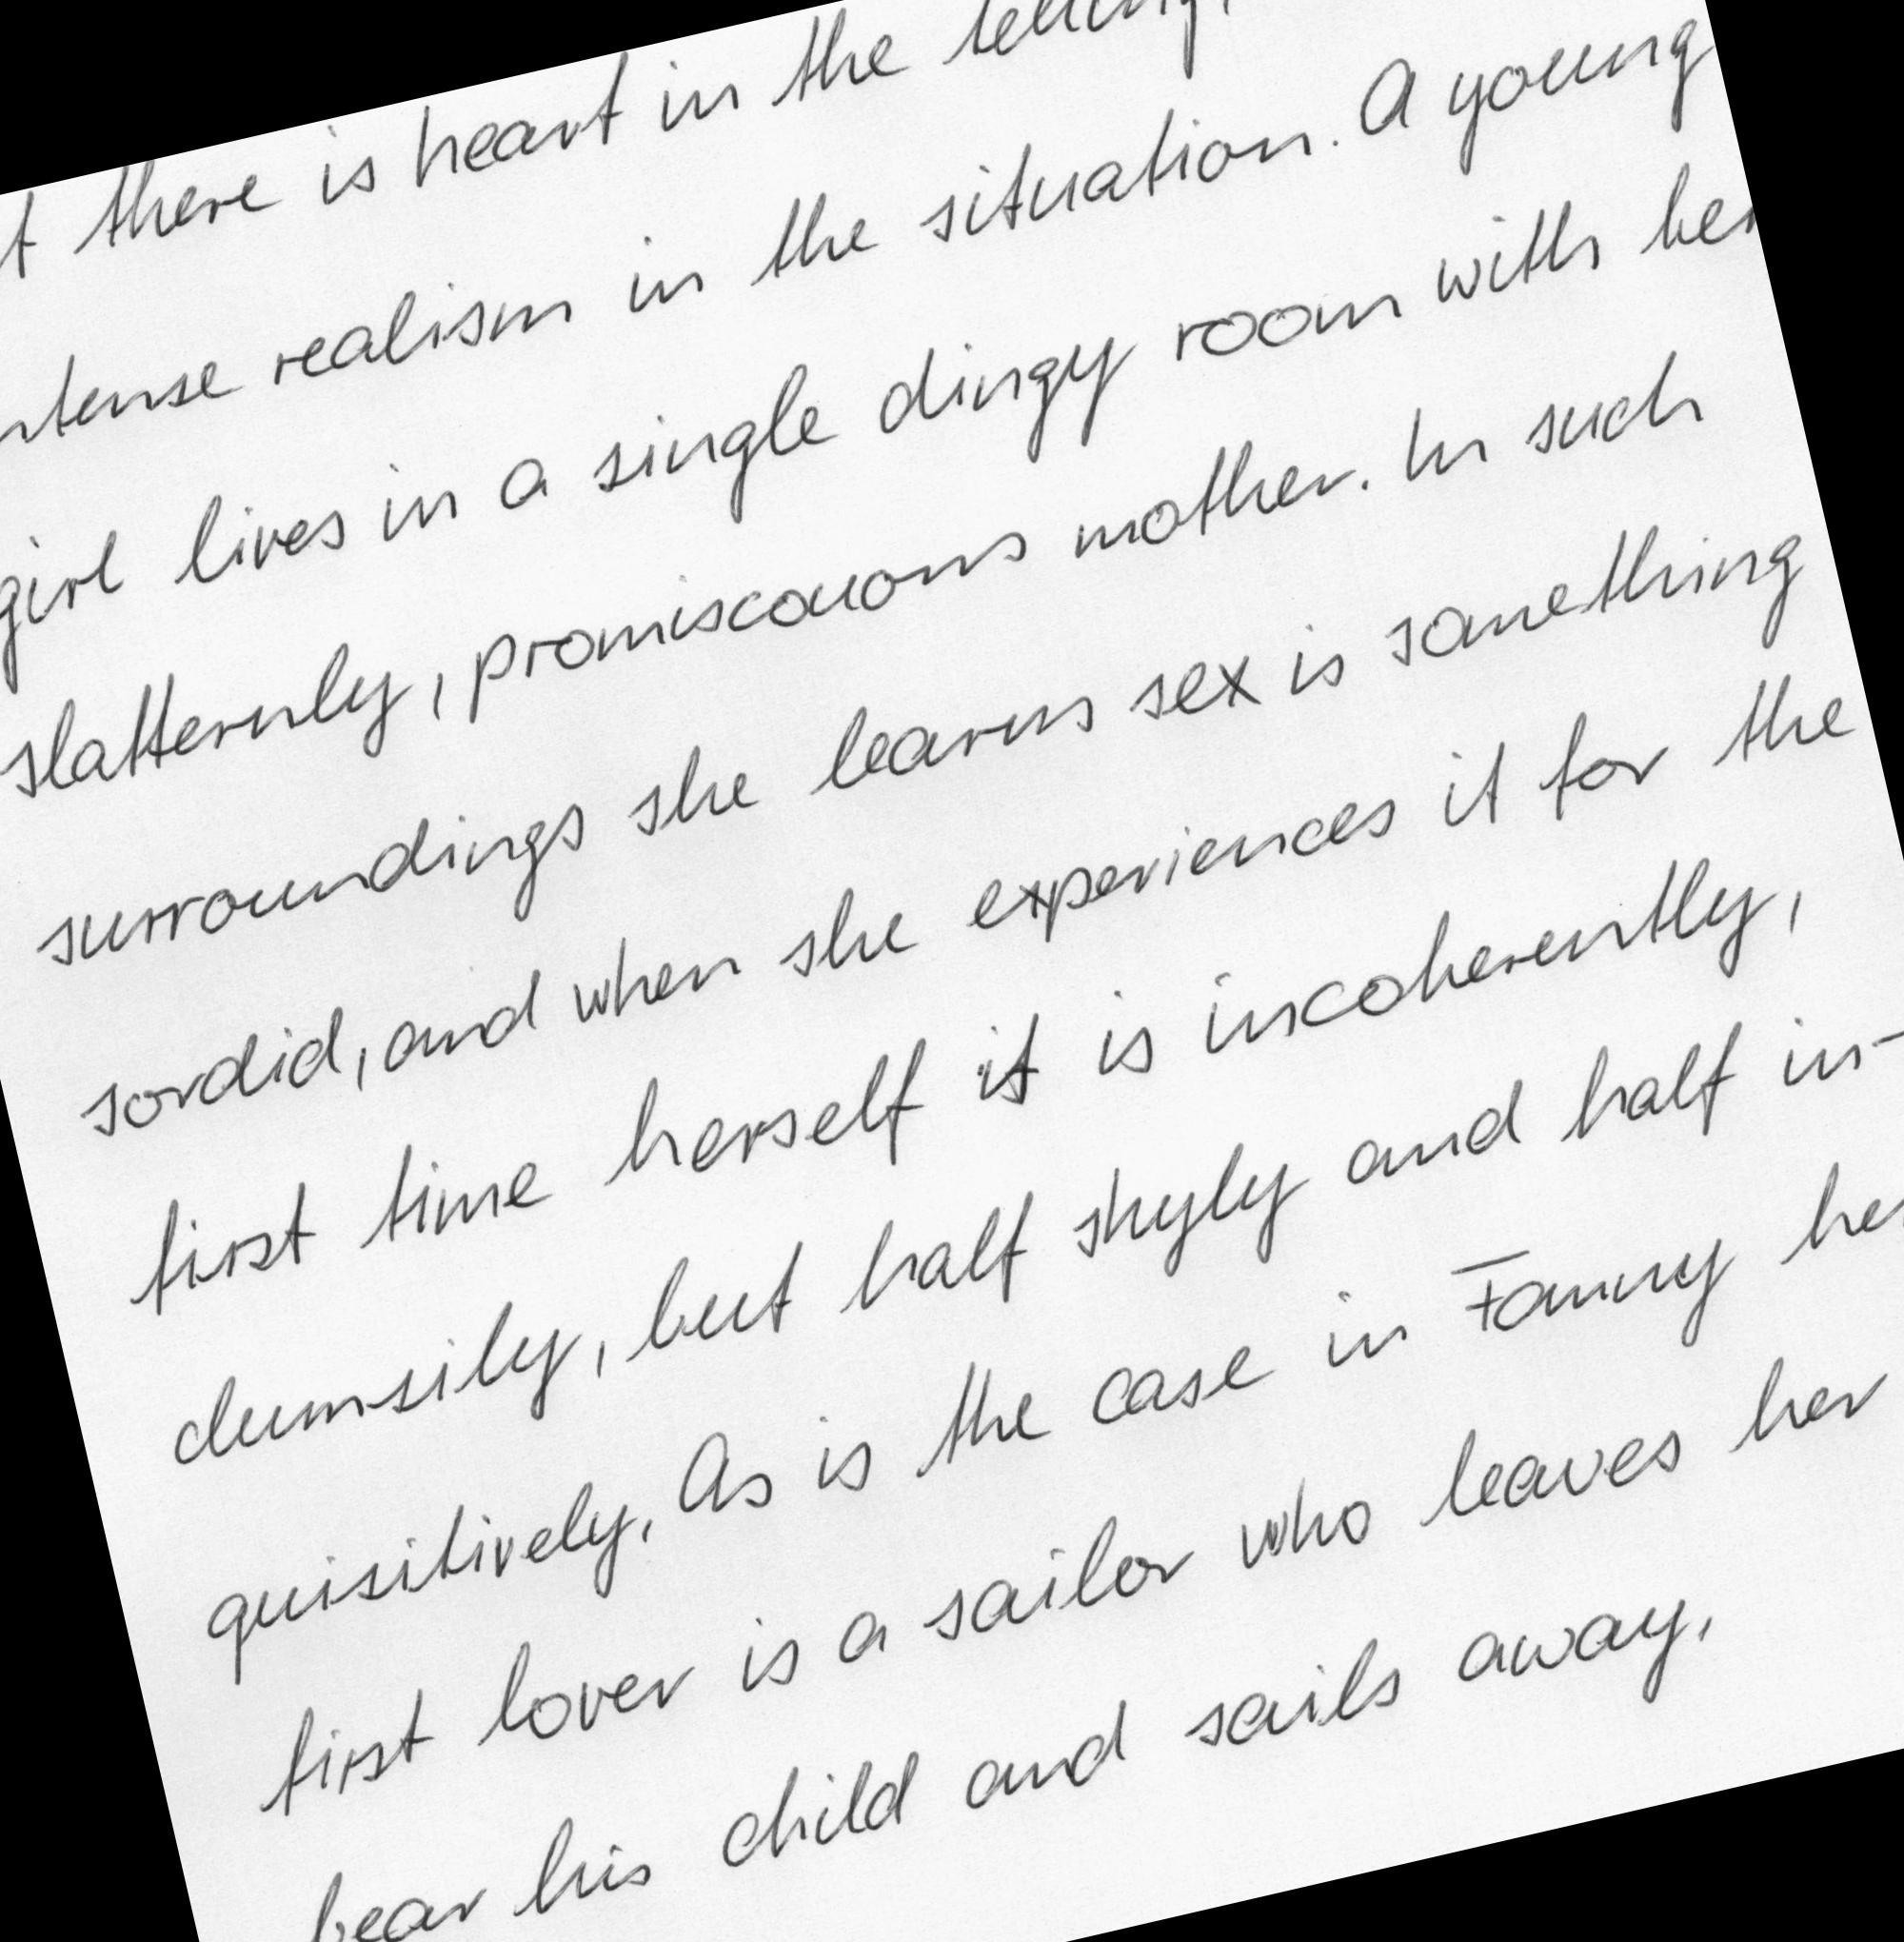 there is heart in the telling,
intense realism in the situation. A young
girl lives in a single dingy room with her
slatternly, promiscouons mother. In such
surroundings she learns sex is something
sordid, and when she experiences it for the
first time herself it is incoherently,
clumsily, but half shyly and half in-
quisitively. As is the case in Fanny her
first lover is a sailor who leaves her
bear his child and sails away.